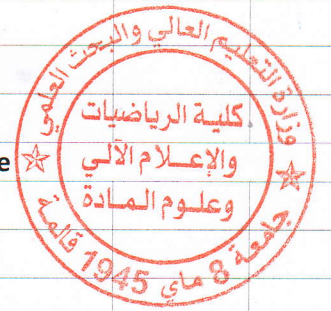 وزارة التعليم العالي والبحث العلمي
كلية الرياضيات
والإعلام الآلي
وعلوم المادة
جامعة 8 ماي 1945 قالمة
e